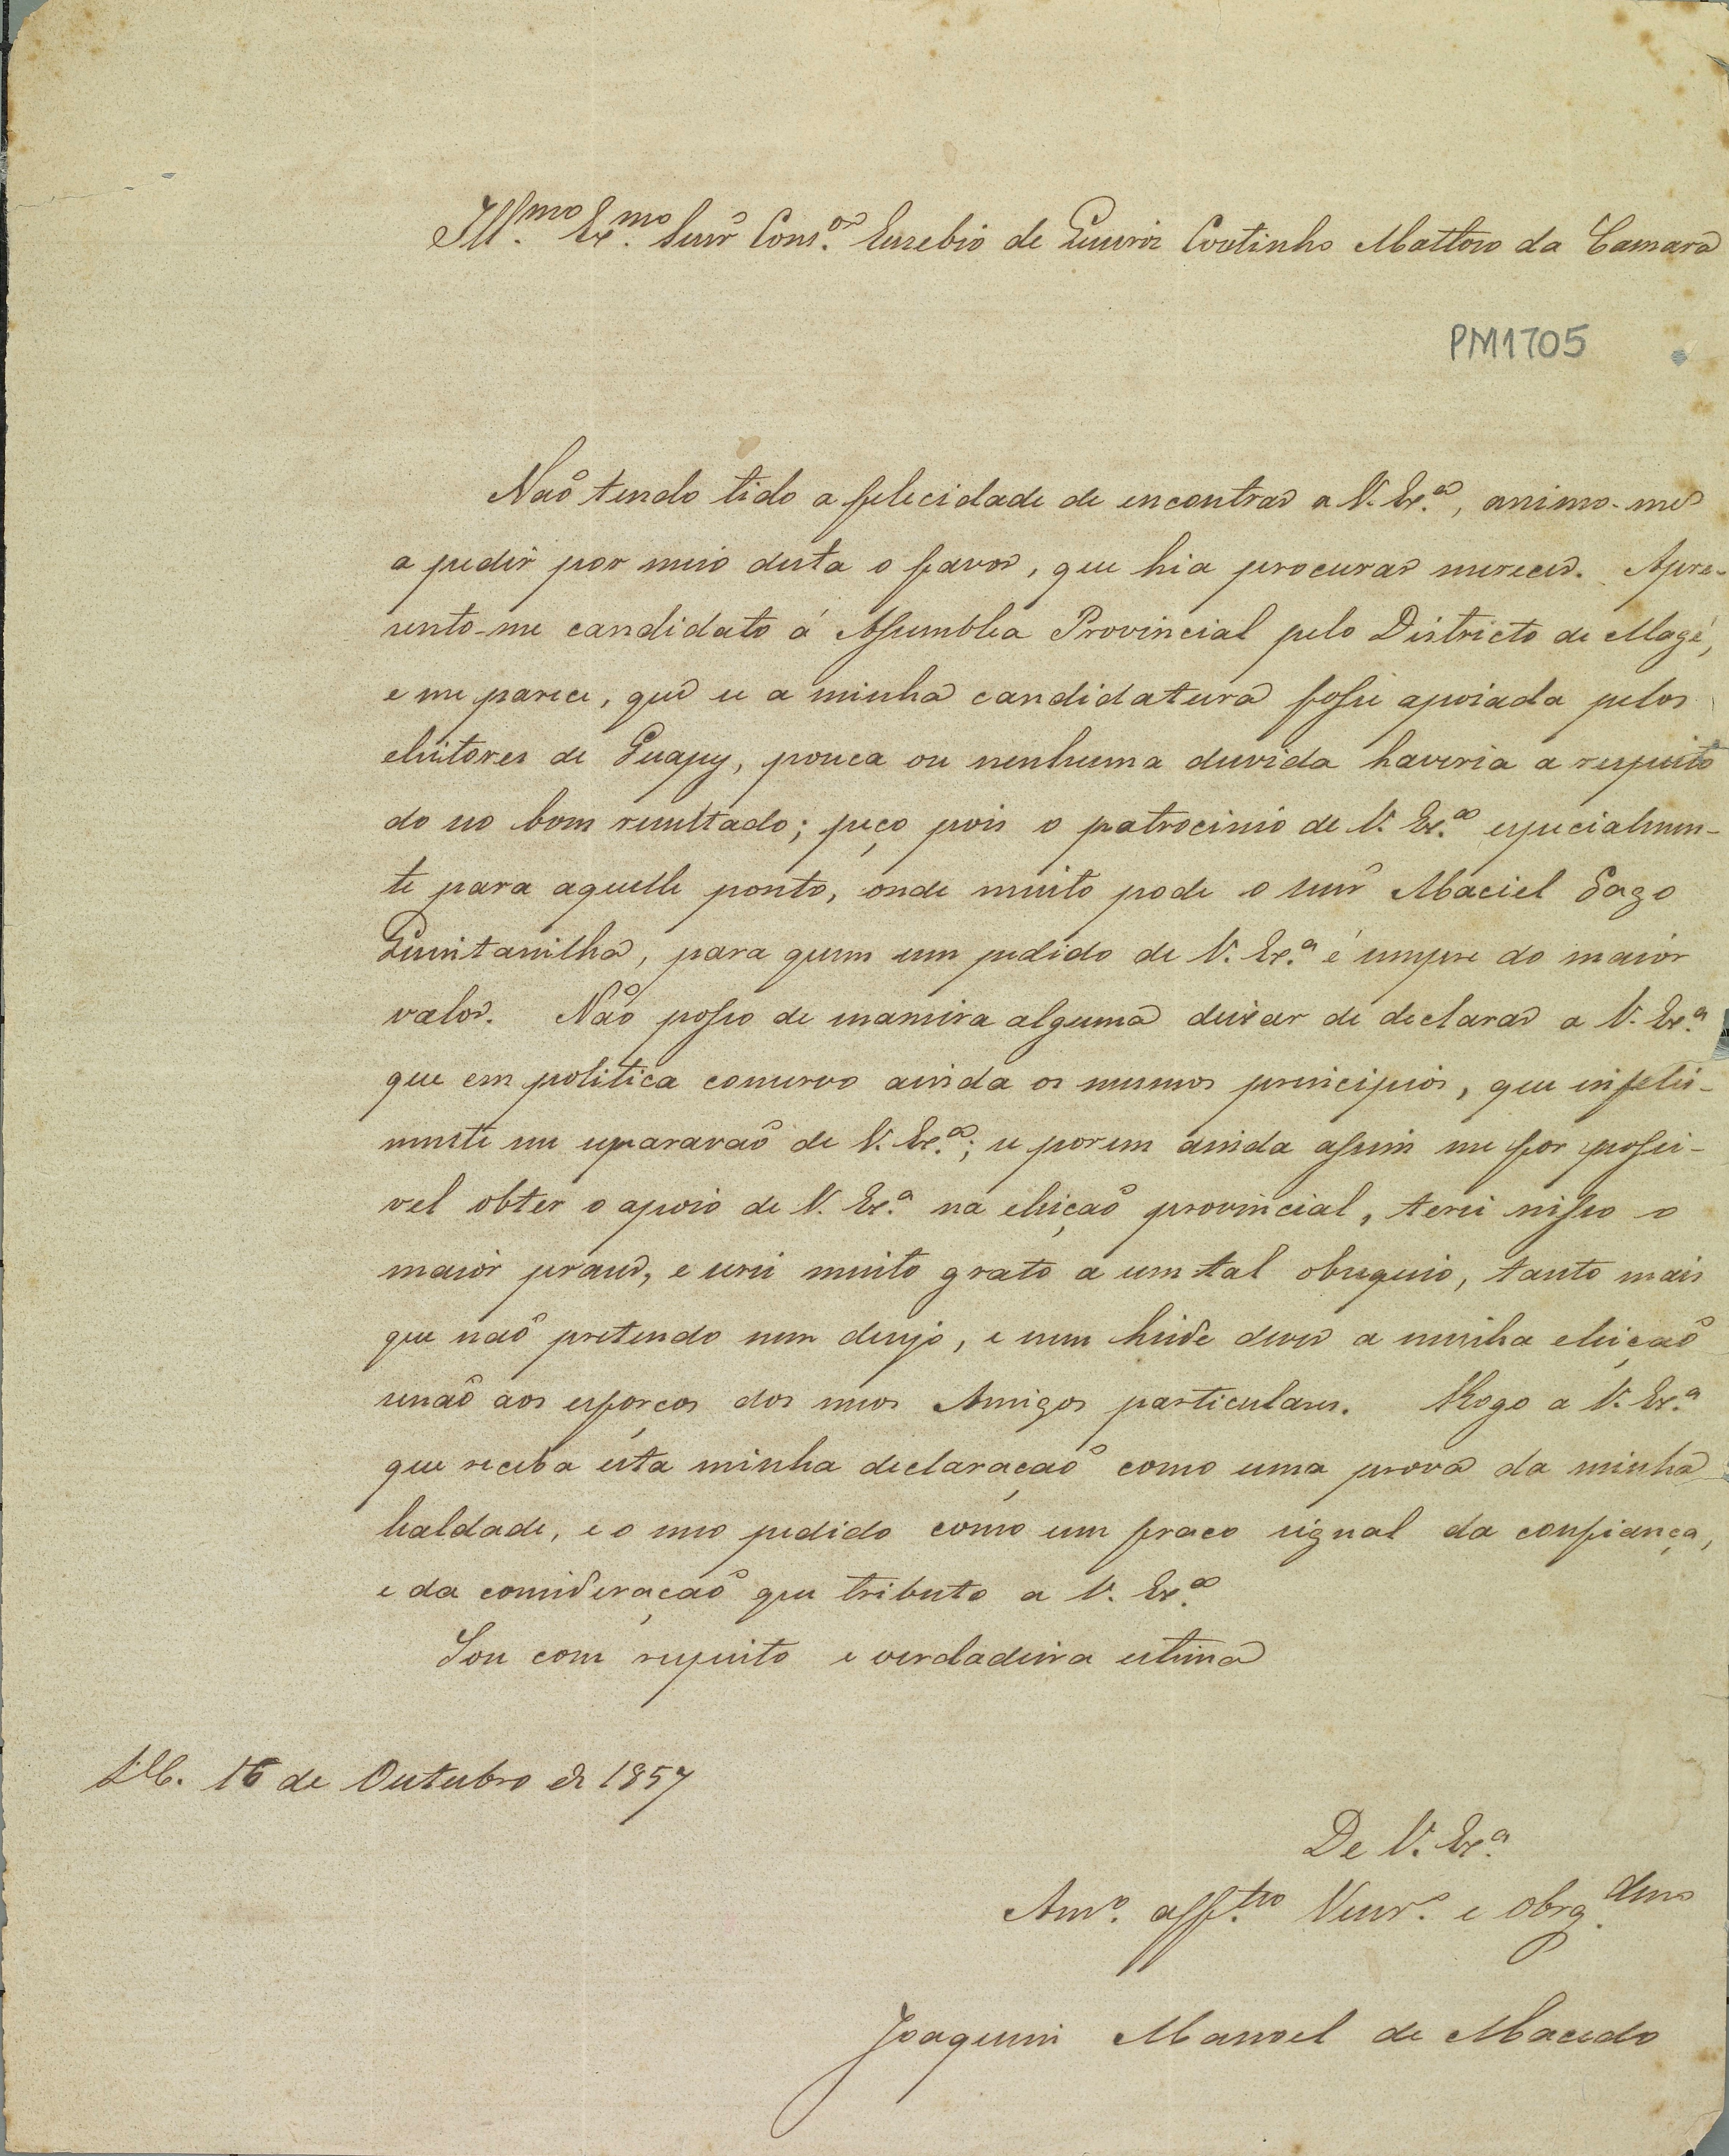 Ill.mo Ex.mo Senr Cons.or Euzebio de Queiroz Coutinho Mattoso da Camara
PM1705
Naõ tendo tido a felecidade de encontrar a V. Ex.a, animo-me
a pedir por meio desta o favor, que hia procurar merecer. Apre-
sento-me candidato á Assemblea Provincial pelo Districto de Magé,
e me parece, que se a minha candidatura fosse apoiada pelos
eleitores de Guapy, pouca ou nenhuma duvida haveria a respeito
do seo bom resultado; peço pois o patrocinio de V. Ex.a especialmen-
te para aquelle ponto, onde muito pode o senr Maciel Gago
Quintanilha, para quem um pedido de V. Ex.a é sempre do maior
valor. Naõ posso de maneira alguma deixar de declarar a V. Ex.a
que em politica conservo ainda os mesmos principios, que infelis-
mente me separaraõ de V. Ex.a; se porem ainda assim me for possi-
vel obter o apoio de V. Ex.a na eleiçaõ provincial, terei nisso o
maior praser, e serei muito grato a um tal obsequio, tanto mais
que naõ pretendo nem desejo, e nem heide dever a minha eleiçaõ
senaõ aos esforços dos meos Amigos particulares. Rogo a V. Ex.a
que receba esta minha declaraçaõ como uma prova da minha
lealdade, e o meo pedido como um fraco signal da confiança,
e da consideraçaõ que tributo a V. Ex.a
Sou com respeito e verdadeira estima
S.C. 16 de Outubro de 1857
De V. Ex.a
Am.o aff.tuo Vener.or e obrg.dmo
Joaquim Manoel de Macedo